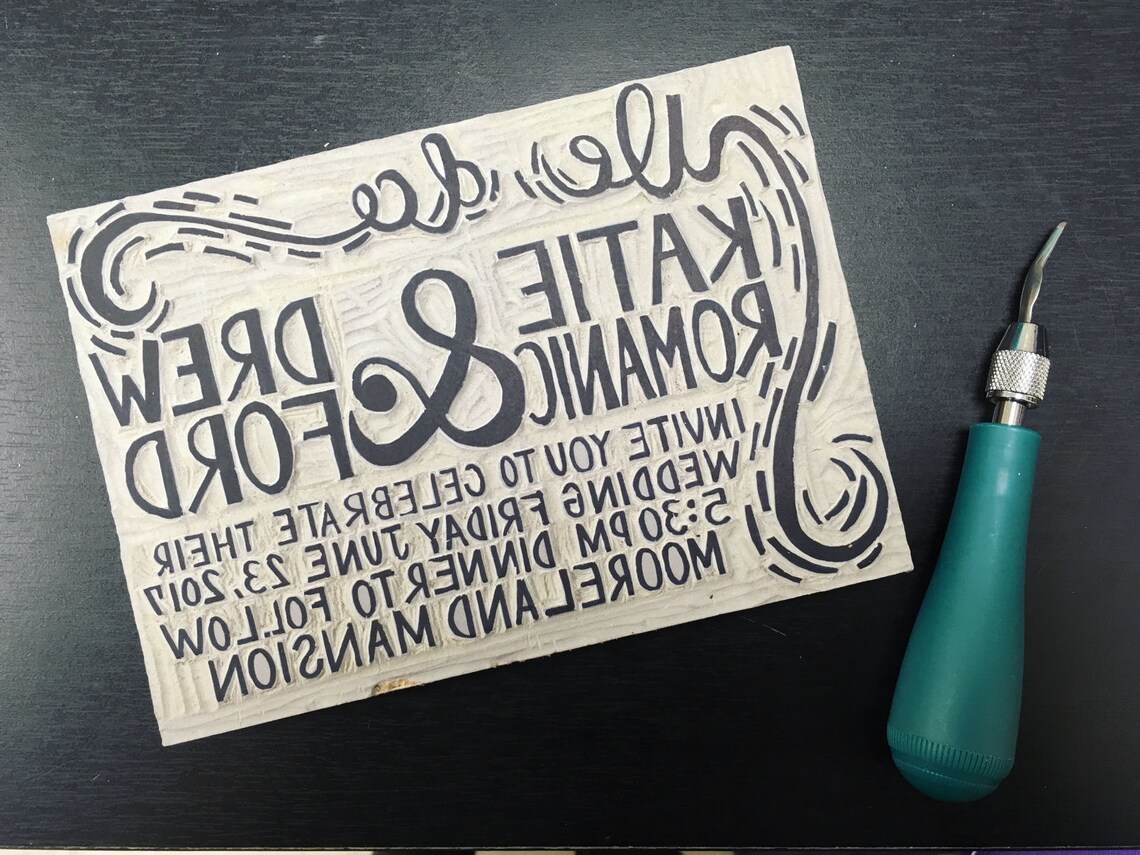 We do
KATIE
ROMANIC
&
DREW
FORD
INVITE YOU TO CELEBRATE THEIR
WEDDING FRIDAY JUNE 23, 2017
5:30PM DINNER TO FOLLOW
MOORELAND MANSION